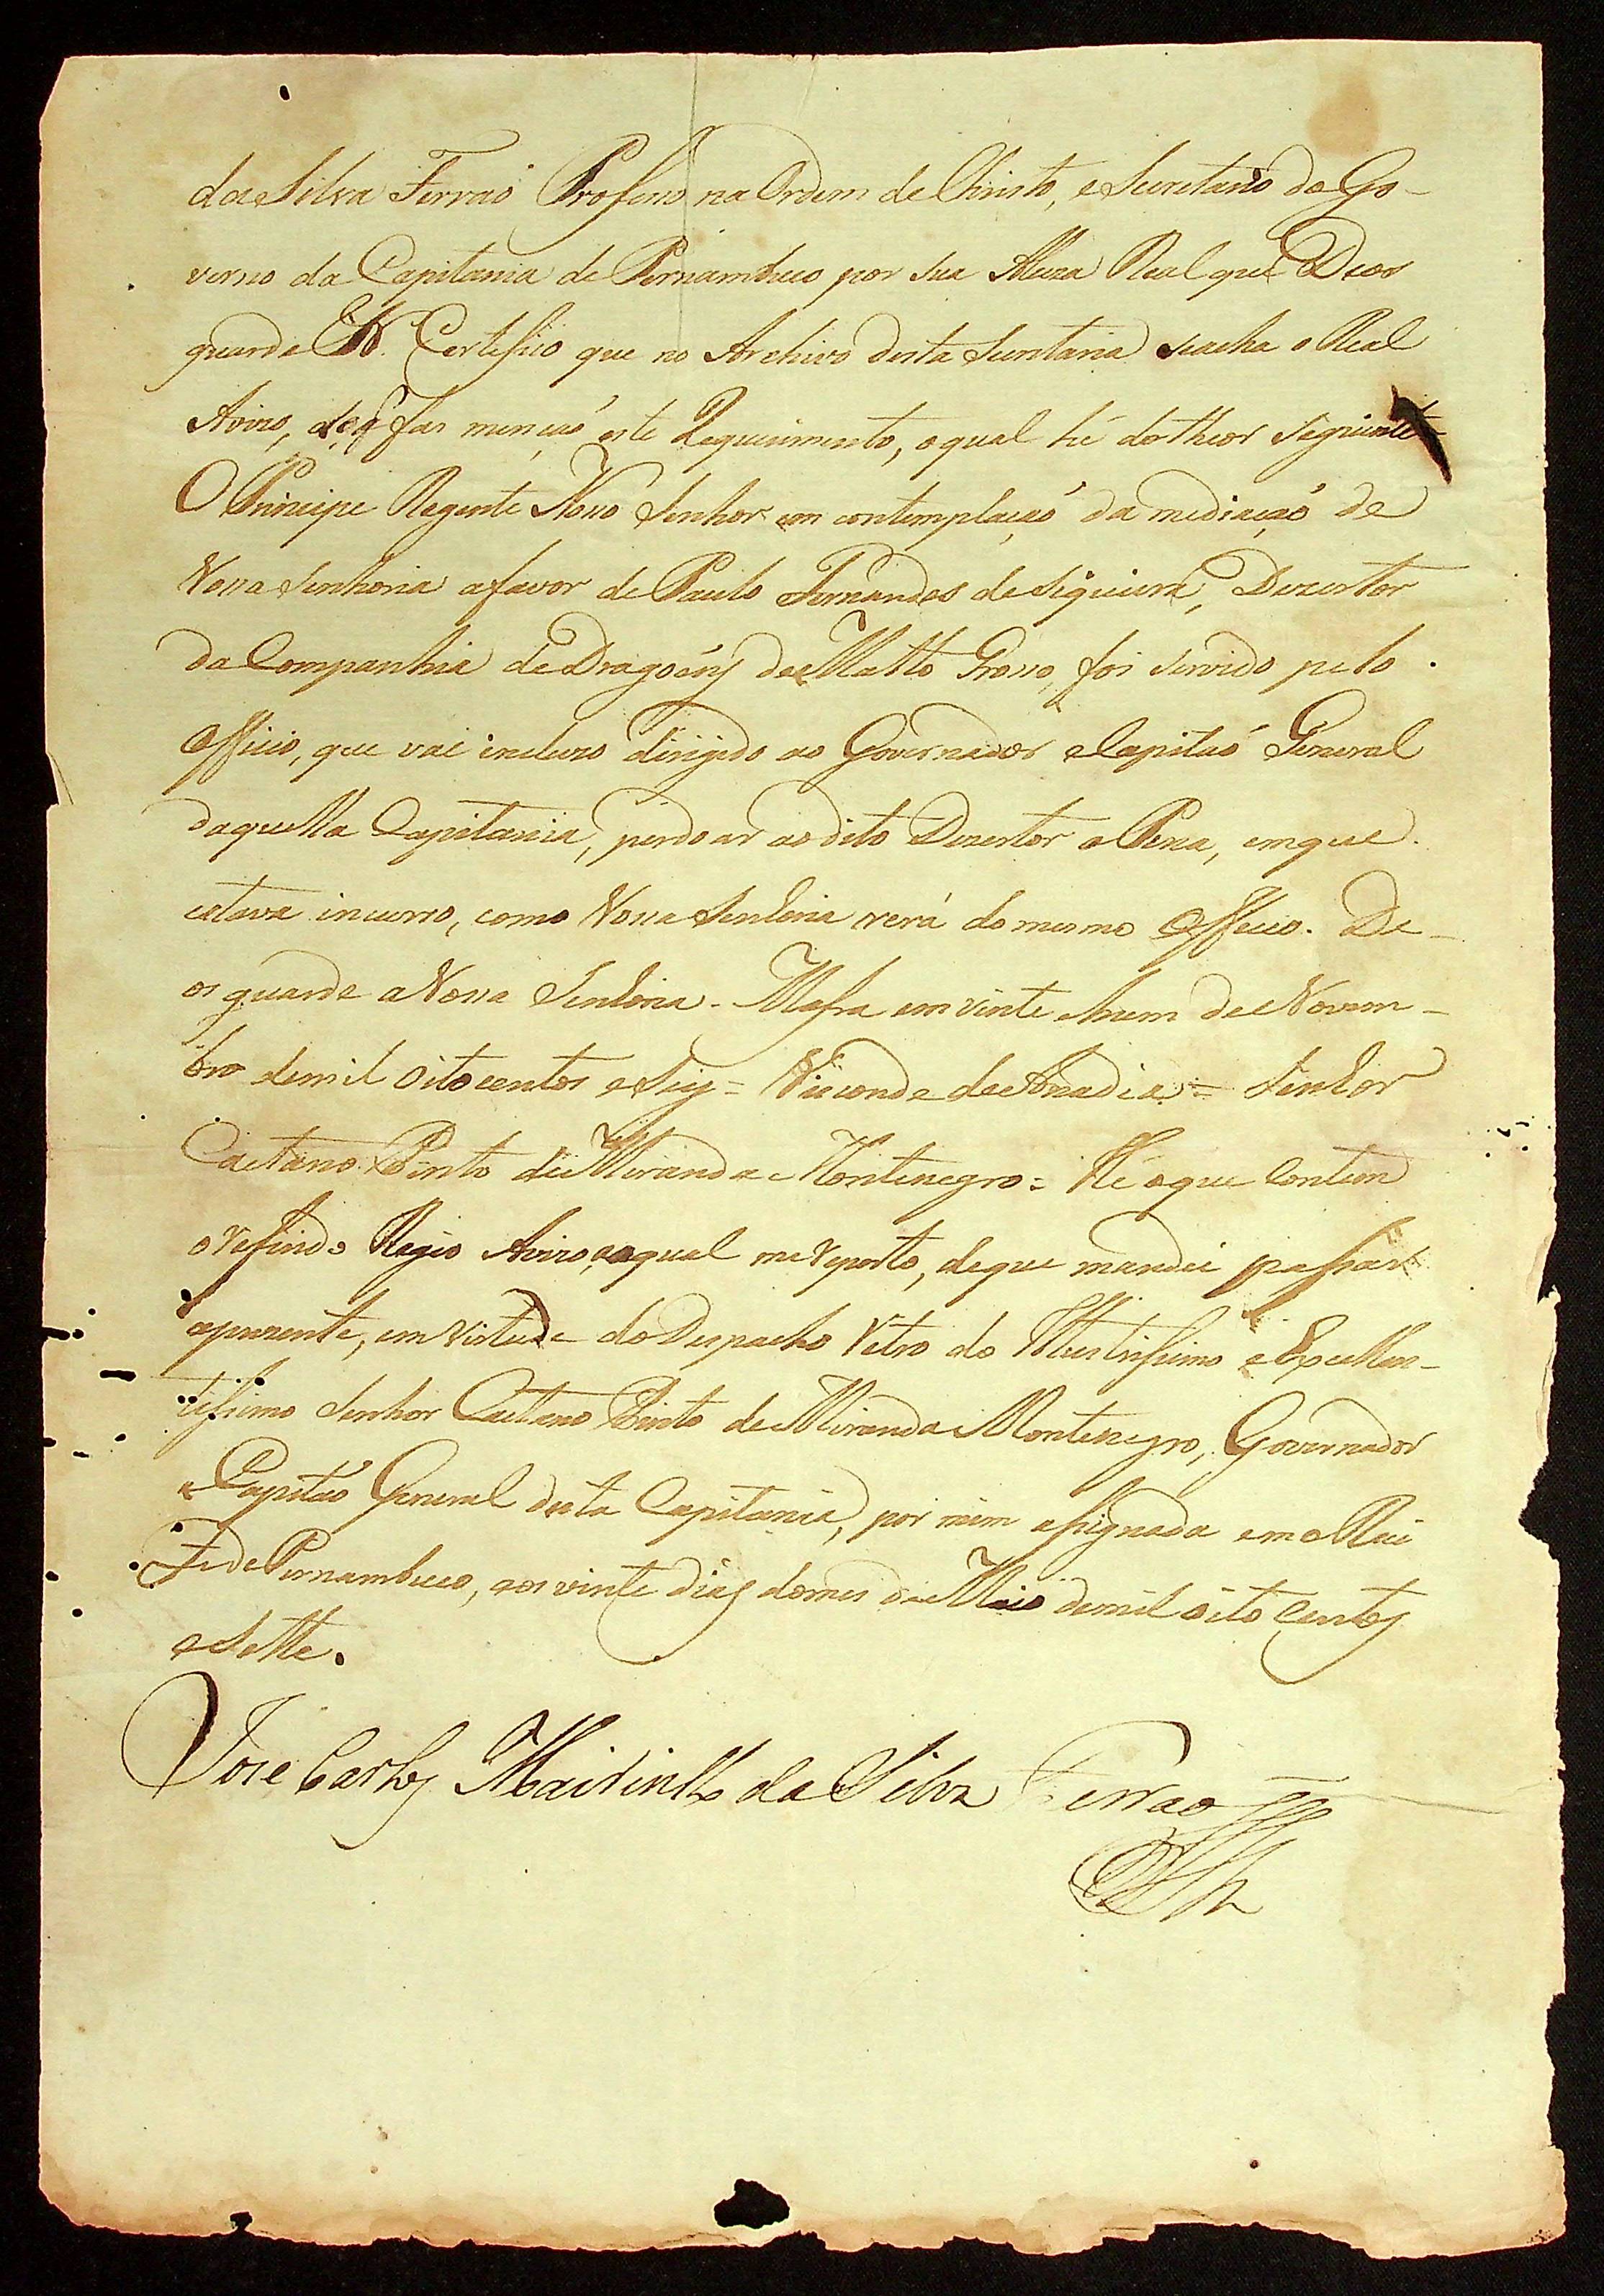 da Silva Ferraõ Professo na Ordem de Christo, e Secretario do Go-
verno da Capitania de Pernambuco por sua Alteza Real que Deos
guarde Etc. Certefico que no Archivo desta Secretaria seacha o Real
Aviso, de q̃ fas mençaõ este Requerimento, oqual hé dotheor seguinte
O Principe Regente Nosso Senhor em contemplaçaõ da mediaçaõ de
Vossa Senhoria afavor de Paulo Fernandes deSiqueira, Dezertor
da Companhia deDragoẽs de Matto Grosso, foi servido pelo
Officio, que vai incluzo dirigido ao Governador eCapitaõ General
daquella Capitania, perdoar aodito Dezertor a Pena, emque
estava incurso, como Vossa Senhoria verá do mesmo Officio. De-
os guarde a Vossa Senhoria. Mafra em vinte ehum de Novem-
bro demil oito centos eSeis = Visconde de Anadia = Senhor
Caetano Pinto de Miranda Montenegro = Hé oque Contem
oreferido Regio Aviso, aoqual mereporto, deque mandei passar
aprezente, em virtude doDespacho retro do Illustrissimo e Excellen-
tissimo Senhor Caetano Pinto de Miranda Montenegro, Governador
e Capitaõ General desta Capitania, por mim assignada em o Reci
fe de Pernambuco, aos vinte dias domes de Maio demil oito Centos
eSette.
Jose Carlos Mairink da Silva Ferrao